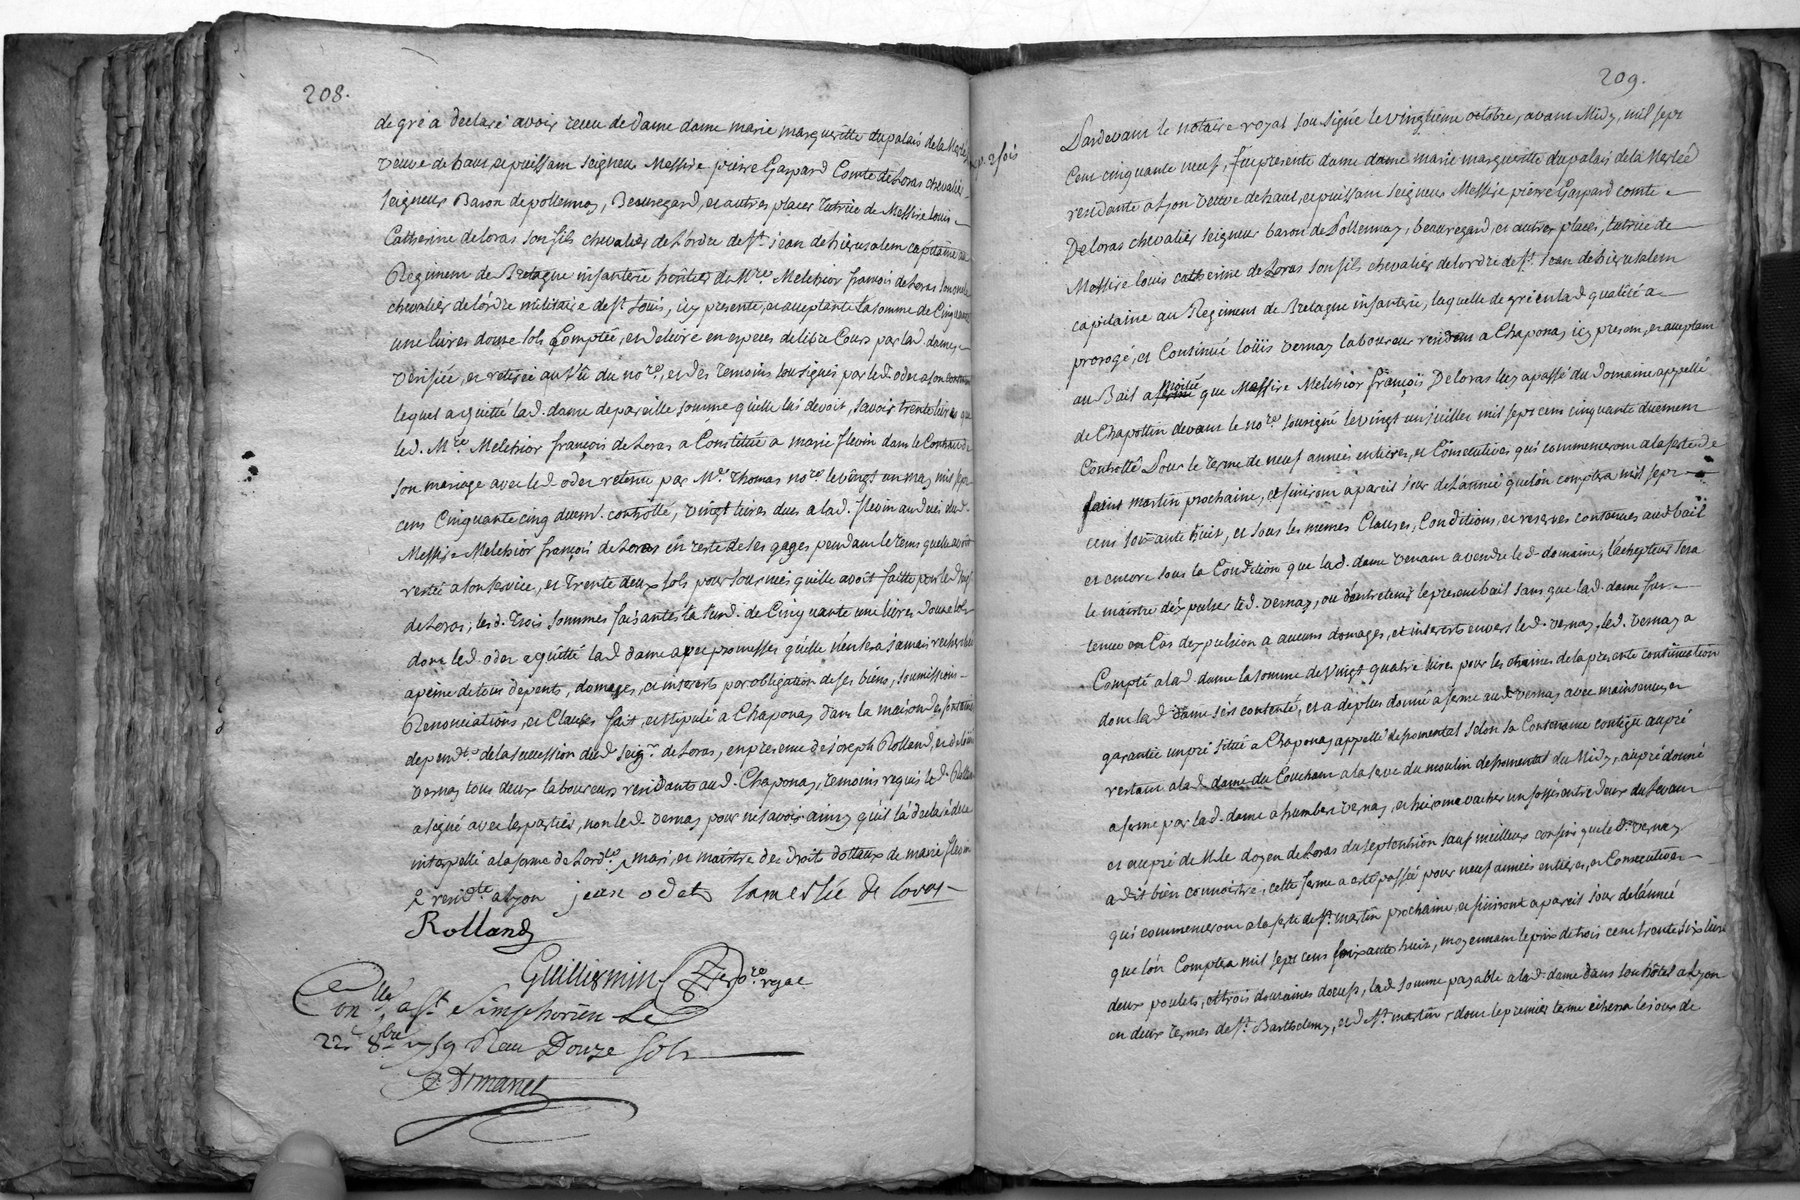 208.
de gré a declaré avoir receu de dame dame marie margueritte dupalais de la Merlée
veuve de haut, et puissam seigneur Messire pierre Gaspard Comte de Loras chevalier
seigneur Baron de pollennay, Beauregard, et autres places tutrice de Messire louis
Catherine de loras son fils chevalier de L'ordre de St. jean de hierusalem capitaine au
Regiment de Bretagne infanterie heritier de Mre. Melchior francois de Loras son oncle
chevalier de l'ordre militaire de St. Louis, icy presente, et acceptante la somme de Cinquante
une livres douze sols Comptée, et delivré en especes de libre Cours par lad. dame,
verifiée, et retirée au vû du nore., et des temoins sousignés par led. odet a son contentement
lequel a quitté lad. dame de pareille somme qu'elle lui devoit, savoir trente livres que
led. Mre. Melchior françois de Loras a Constitué a marie flevin dans le Contrat de
son mariage avec led. odet retenu par Me. Thomas nore. le vingt un may mil sept
cens Cinquante cinq duem. controllé, vingt livres dues a lad. flevin aud. dud.
Messire Melchior françois de Loras en reste de ses gages pendant le tems quelle avoit
restée a son service, et trente deux sols pour journées qu'elle avoit faitte pour led.
de Loras, lesd. trois sommes faisantes la susd. de Cinquante une livres douze sols
dont led. odet a quitté lad. dame avec promesses qu'elle n'en sera jamais recherchée
a peine de tous depents, domages, et interests par obligation de ses biens, soumissions
Renonciations, et Clauses fait, et stipulé a Chaponay dans la maison de
depend.te de la succession dud. seigr. de Loras, en presence de joseph Rolland, et de
vernay tous deux laboureurs residants aud. Chaponay, temoins requis led. Rolland
a signé avec les parties, non led. vernay pour ne savoir ainsy qu'il l'a declaré de ce
interpellé a la forme de Lordce. mari, et maistre des droits dottaux de marie flevin
residte. a Lyon jean odet lamerlée de loras
Rolland
Guilliermin nore. royal
Conllé. a St. Simphorien Le
22e. 8bre. 1759 Reçu Douze sols
Armanet
209.
exp. 2 fois
Pardevant le notaire royal sousigné le vingtieme octobre, avant Midy, mil sept
Cent cinquante neuf, fut presente dame dame marie margueritte dupalais de la Merlée
residante a Lyon veuve de haut, et puissam seigneur Messire pierre Gaspard comte
De loras chevalier seigneur baron de Pollennay, beauregard, et autres places, tutrice de
Messire louis catherine de Loras son fils chevalier de l'ordre de St. Jean de hierusalem
capitaine au Regiment de Bretagne infanterie, laquelle de gré en lad. qualité a
prorogé, et Continué loüis vernay laboureur residant a Chaponay icy present, et acceptant
au Bail a ferme moitié que Messire Melchior françois De loras luy a passé du domaine appellé
de Chapottin devant le nore. sousigné le vingt un juillet mil sept cens cinquante duement
Controllé Pour le terme de neuf années entieres, et Consecutives qui commenceront a la feste de
saint martin prochaine, et finiront a pareil jour de l'année que l'on comptera mil sept
cens soixante huit, et sous les memes Clauses, Conditions, et reserves contenues aud. bail
et encore sous la Condition que lad. dame venant a vendre led. domaine, l'achepteur sera
le maistre d'expulser led. vernay, ou d'entretenir le present bail sans que lad. dame soit
tenue en Cas d'expulsion a aucuns domages, et interests envers led. vernay, led. vernay a
Compté a lad. dame la somme de vingt quatre livres pour les etraines de la presente continuation
dont lad. dame s'est contenté, et a de plus donné a ferme aud. vernay avec maintenue, et
garantie un pré situé a Chaponay appellé de fromental selon sa Contenance contigu au pré
restant a lad. dame du Couchant a la serve du moulin de fromental du Midy, au pré donné
a ferme par lad. dame a humbert vernay, et hierome vacher un fossé entre deux du Levant
et au pré de M. le doyen de Loras du septentrion sauf meilleurs confins que led. vernay
a dit bien connoistre, cette ferme a esté passée pour neuf années entieres, et Consecutives
qui commenceront a la feste de St. martin prochaine, et finiront a pareil jour de l'année
que l'on Comptera mil sept cens soixante huit, moyennant le prix de trois cent trente six livres
deux poulets, et trois douzaines d'oeufs, lad. somme payable a lad. dame dans son hôtel a Lyon
en deux termes de St. Barthelemy, et de St. martin, dont le premier terme echera le jour de